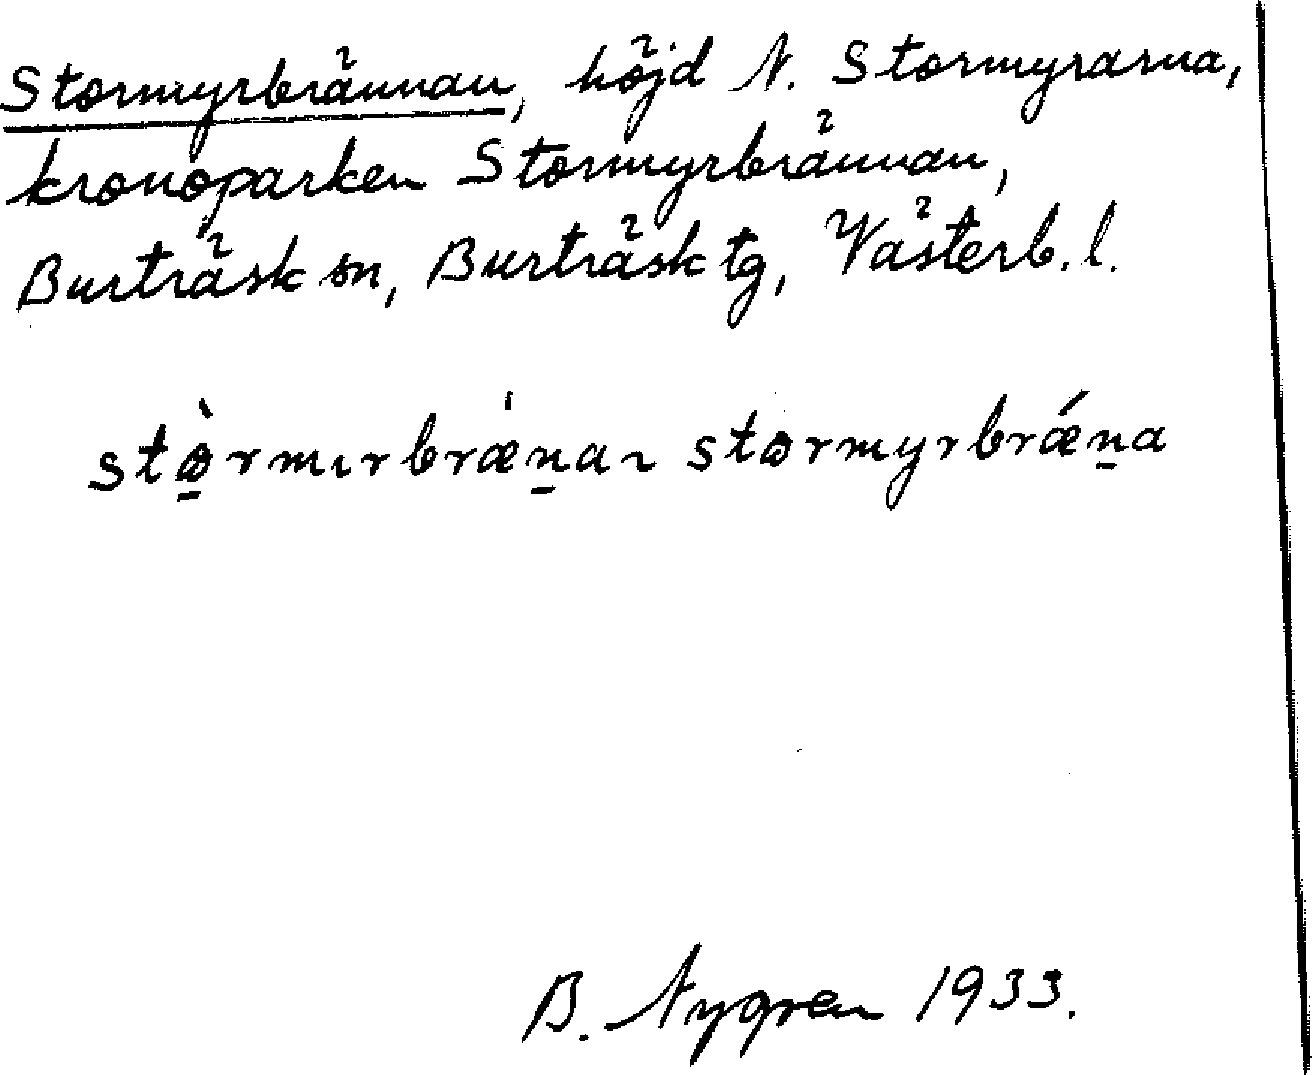 Stormyrbrännan, höjd N. Stormyrarna,
kronoparken Stormyrbrännan,
Burträsk sn, Burträsk tg, Västerb. l.
stø̠̀rmırbræ̀n̠a ~ størmyrbrǽn̠a
B. Nygren 1933.